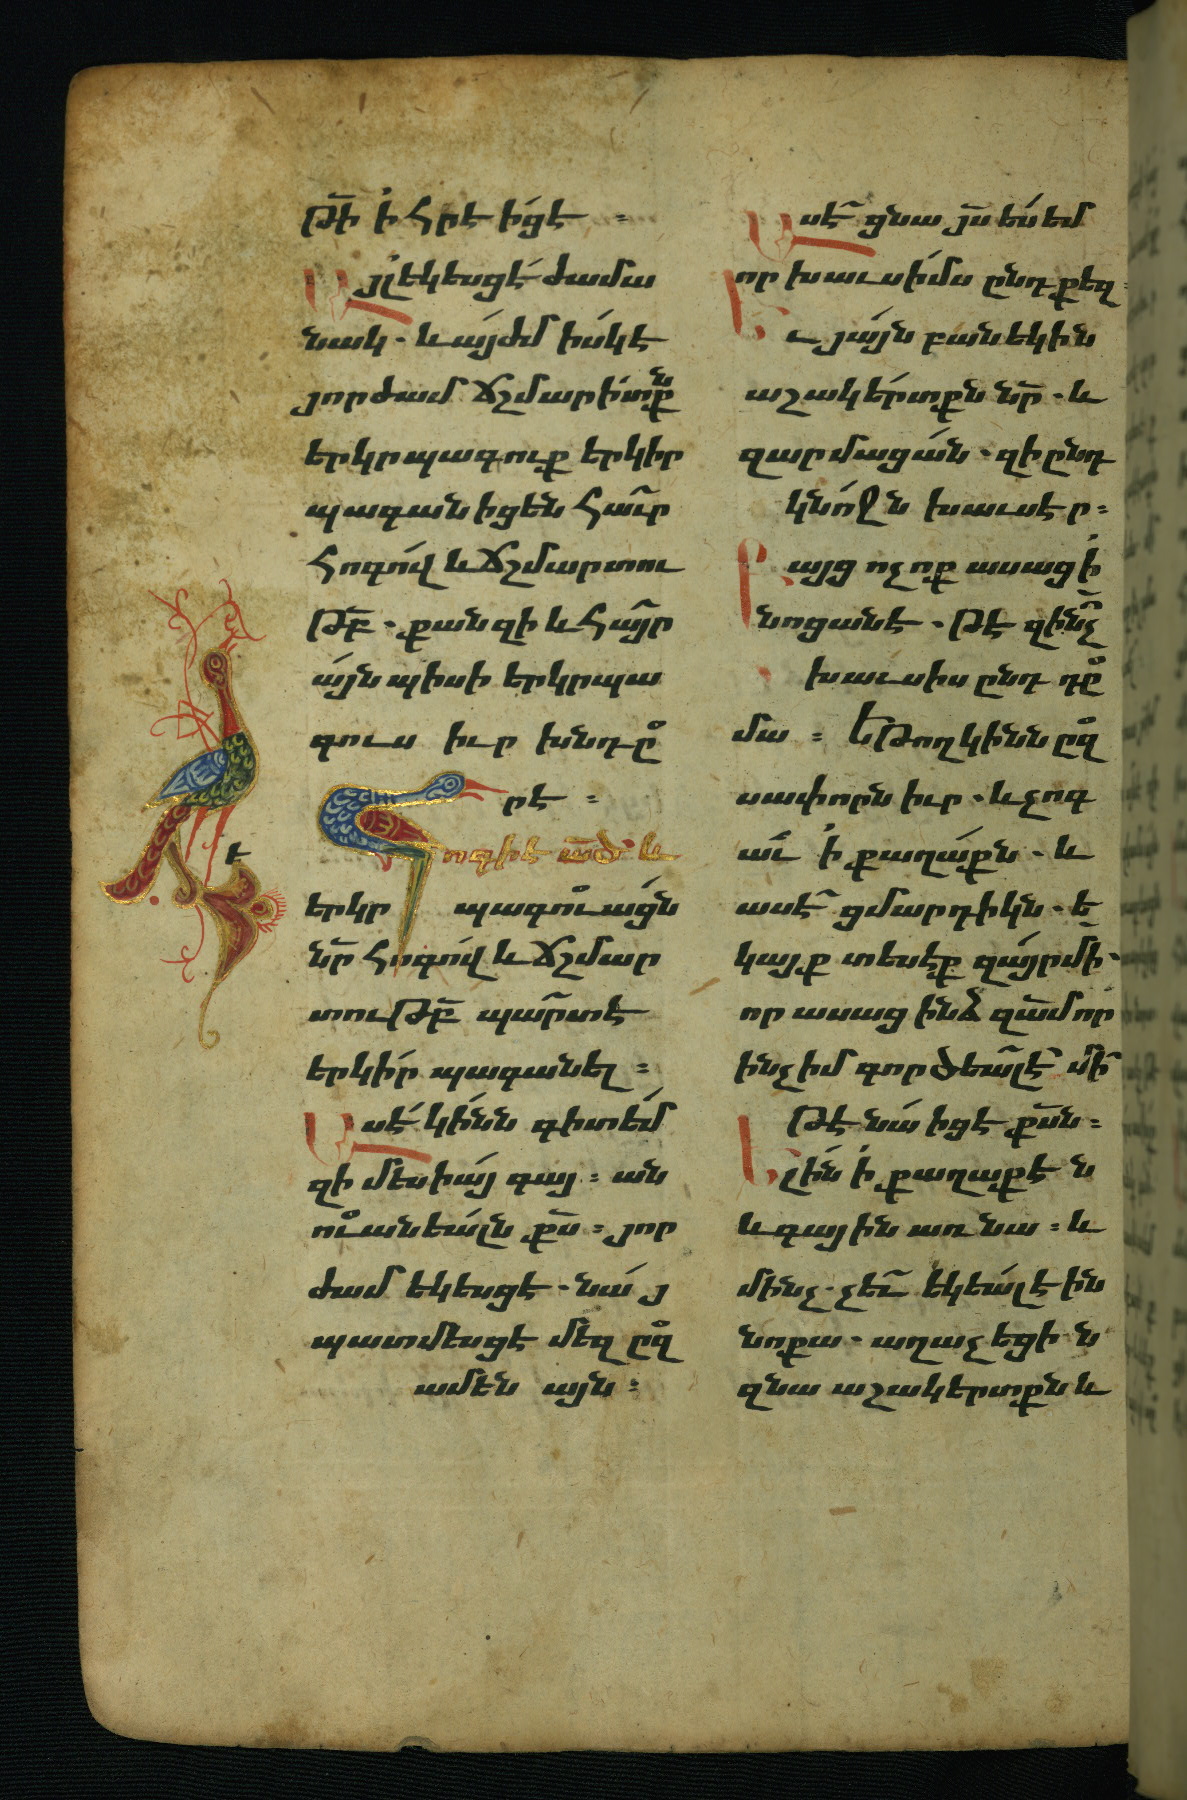 թի՛ ի հրէից է ։
Այլ եկեսցէ ժամա
նակ . և այժմ իսկ է
յորժամ ճշմարիտքն
երկրպագուք երկիր
պագանիցեն հաւր
հոգով և ճշմարտու
թբ . քանզի և հայր
այնպիսի երկրպա
գուս իւր խնդը
րէ ։
Հոգի է ած և
երկր պագուացն
նր հոգով և ճշմար
տութբ պարտ է
երկիր պագանել ։
Ասէ կինն գիտեմ
զի մեսիայ գայ ։ ան
ուանեալն քս ։ յոր
ժամ եկեսցէ . նա յ
պատմեսցէ մեզ ըզ
ամեն այն ։
է
Ասէ ցնա յս ես եմ
որ խաւսիմս ընդ քեզ ։
Եւ յայն բան եկին
աշակերտքն նր . և
զարմացան . զի ընդ
կնոջն խաւսէր ։
Բայց ոչ ոք ասաց ի
նոցանէ . թէ զինչ
խաւսիս ընդ դը
մա ։ Եթող կինն ըզ
սափորն իւր . և չոգ
աւ ի քաղաքն . և
ասէ ցմարդիկն . ե
կայք տեսէք զայր մի .
որ ասաց ինձ զամ որ
ինչ իմ գործեալ է մի
թէ նա իցէ քսն ։
Ելին ի քաղաքէն
և գային առ նա ։ և
մինչ չեւ եկեալ էին
նոքա . աղաչեցին
զնա աշակերտքն և